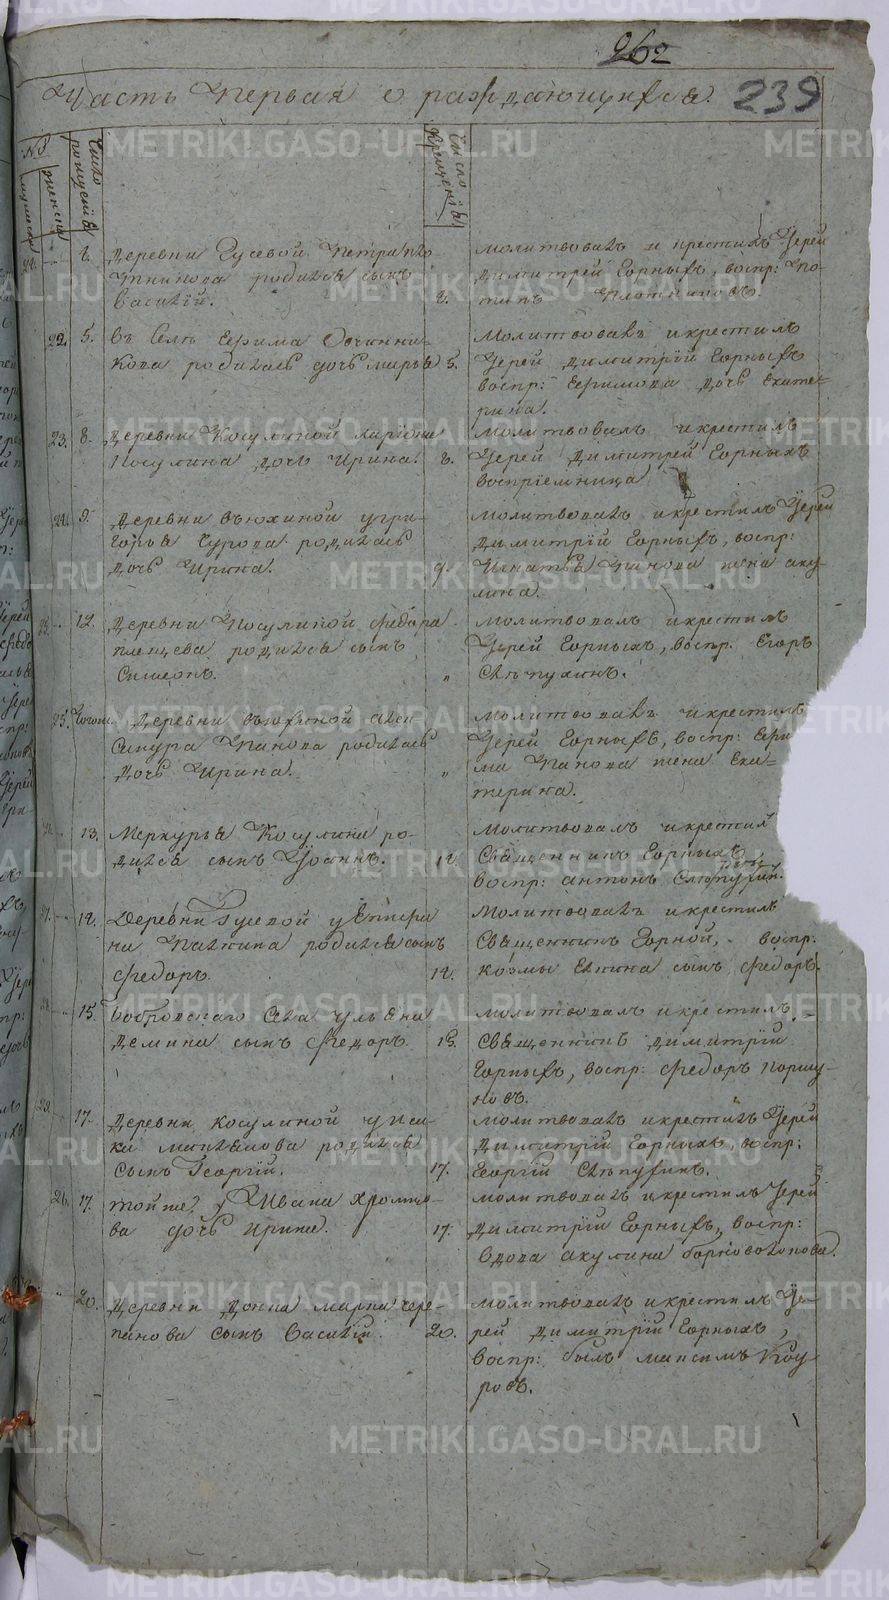 262
239
Часть первая о раждающихся.
№
мужеска
женска
Число рождения
Число крещения
21. 2. Деревни Гусевой Петра Пло-
тникова родился сынъ
Василій.
2.
молитвовалъ и крестилъ Іерей
Димитрей Горныхъ, воспр: По-
тапъ Плотниковъ.
22. 5. въ Селѣ Ефима Овчинни-
кова родилась дочь Марья 5.
Молитвовалъ и крестилъ
Іерей Димитрій Горныхъ
воспр: Ефимова дочь Екате-
рина.
23. 8. Деревни Косулиной Ларіона
Косулина дочь Ирина. 8.
Молитвовалъ и крестилъ
Іерей Димитрей Горныхъ
воспріемница
24. 9. Деревни Вьюхиной у Гри-
горья Сурова родилась
дочь Ирина. 9.
Молитвовалъ и крестилъ Іерей
Димитрій Горныхъ, воспр:
Игнатья Панова жена Аку-
лина.
25. 12. Деревни Косулиной Федора
Плещева родился сынъ
Симеонъ. „
молитвовалъ и крестилъ
Іерей Горныхъ, воспр. Егоръ
Слѣпухинъ.
25. Деревни Вьюхиной Алек-
сандра Панова родилась
дочь Ирина. „
Молитвовалъ и крестилъ
Іерей Горныхъ, воспр: Ефи-
ма Панова жена Ека-
терина.
13. Меркурья Косулина ро-
дился сынъ Іоаннъ. 12.
Молитвовалъ и крестилъ
Священникъ Горныхъ
воспр: Антонъ Слѣпухинъ.
27. 12. Деревни Гусевой
родился сынъ
Федоръ. 12.
Молитвовалъ и крестилъ
Священникъ Горной, воспр:
Козмы сынъ Федоръ.
15. Бобровскаго Села Ульяна
Демина сынъ Федоръ. 15.
молитвовалъ и крестилъ
Священникъ Димитрій
Горныхъ, воспр: Федоръ Поршу-
новъ.
29. 17. Деревни Косулиной
родился
сынъ Георгій. 17.
молитвовалъ и крестилъ Іерей
Димитрій Горныхъ, воспр:
Георгій Слѣпухинъ.
26. 17. той же у Ивана Храмцо-
ва дочь Ирина. 17.
молитвовалъ и крестилъ Іерей
Димитрій Горныхъ, воспр:
вдова Акулина
20. Деревни Марка Чере-
панова сынъ Василій. 20.
молитвовалъ и крестилъ Іе-
рей Димитрій Горныхъ,
воспр: былъ Максимъ Коу-
ровъ.
METRIKI.GASO-URAL.RU